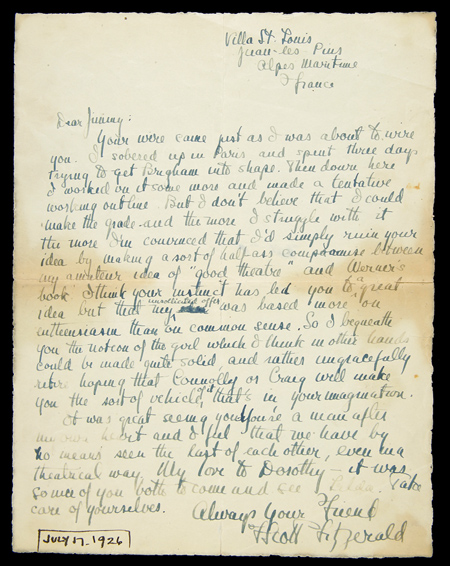 Villa St. Louis
Juan-les-Pins
Alpes Maritime
France
Dear Jimmy:
Your wire came just as I was about to wire
you. I sobered up in Paris and spent three days
trying to get Brigham into shape. Then down here
I worked on it some more and made a tentative
working outline. But I don't believe that I could
make the grade and the more I struggle with it
the more I'm convinced that I'd simply ruin your
idea by making a sort of half ass compromise between
my amateur idea of "good theatre" and Werner's
book. I think your instinct has led you to a great
idea but that my unsolicited offer was based more on
enthusiasm than on common sense. So I bequeathe
you the notion of the girl which I think in other hands
could be made quite solid, and rather ungracefully
retire hoping that Connolly or Craig will make
you the sort of vehicle of it that's in your imagination.
It was great seeing you. You're a man after
my own heart and I feel that we have by
no means seen the last of each other, even in a
theatrical way. My love to Dorothy – it was
so nice of you both to come and see Zelda. Take
care of yourselves.
Always Your Friend
F Scott Fitzgerald
JULY 17. 1926